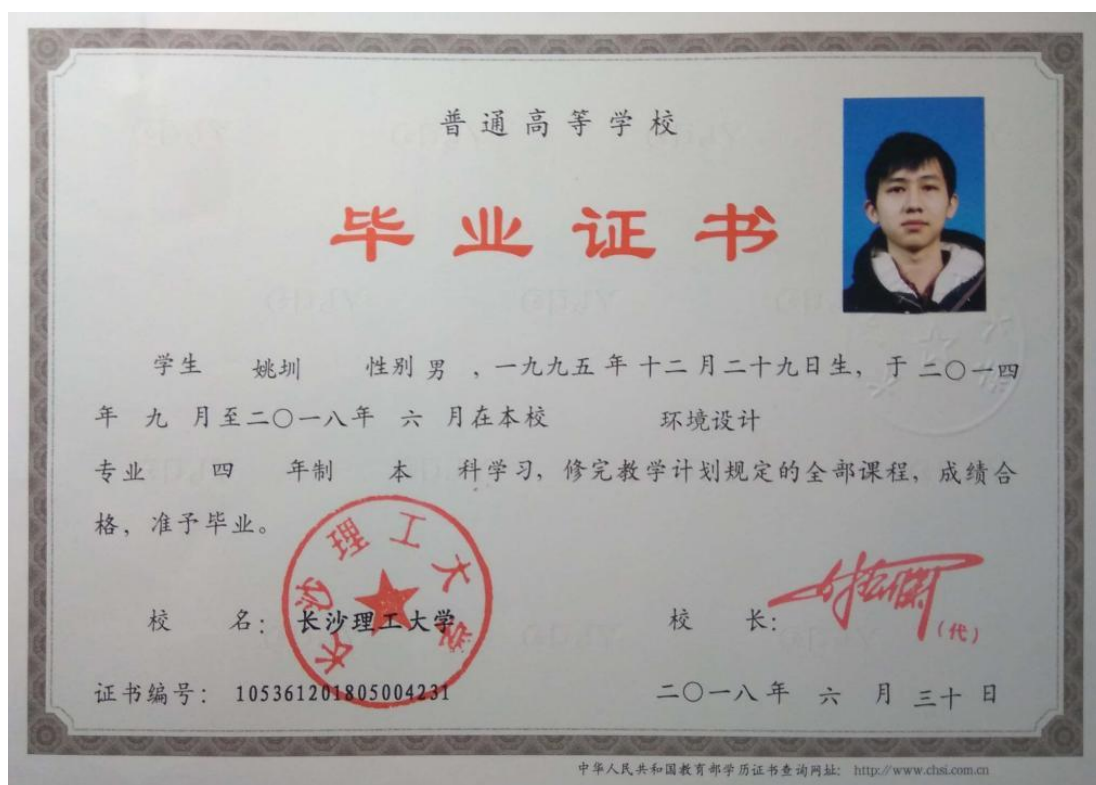 普通高等学校
毕业证书
学生 姚圳 性别 男 ，一九九五 年 十二 月二十九日生，于 二〇一四
年 九 月至二〇一八年 六 月在本校 环境设计
专业 四 年制 本 科学习，修完教学计划规定的全部课程，成绩合
格，准予毕业。
长沙理工大学
校 名：长沙理工大学 校 长：
（代）
证书编号：105361201805004231 二〇一八年 六 月 三十 日
中华人民共和国教育部学历证书查询网址： http://www.chsi.com.cn